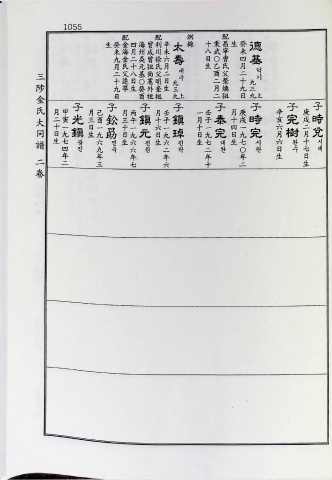 1055
德基 덕기
上九三九
癸未四月二十九日
生
配昌寧曹氏父燦煥祖
秉武乙酉二月二
十八日生
炳錦
太壽 태수
上九三九
辛未六月二日生
配利川徐氏父明奎祖
曾成曾祖尚憲外祖
海州吳元基癸酉
四月二十八日生
配金海金氏父達準
癸未九月二十九日
生
子時兌 시태
庚戌一月十七日生
子完樹 완수
辛亥六月六日生
子時完 시완
庚戌一九七〇年二
月十四日生
子泰完 태완
壬子一九七二年十
一月十日生
子鎭琸 진탁
壬寅一九六二年六
月十六日生
子鎭元 진원
丙午一九六六年七
月三十日生
子鈆勗
己酉一九六九年三
月三日生
子光鎭 광진
甲寅一九七四年二
月二十日生
三陟金氏大同譜 二卷